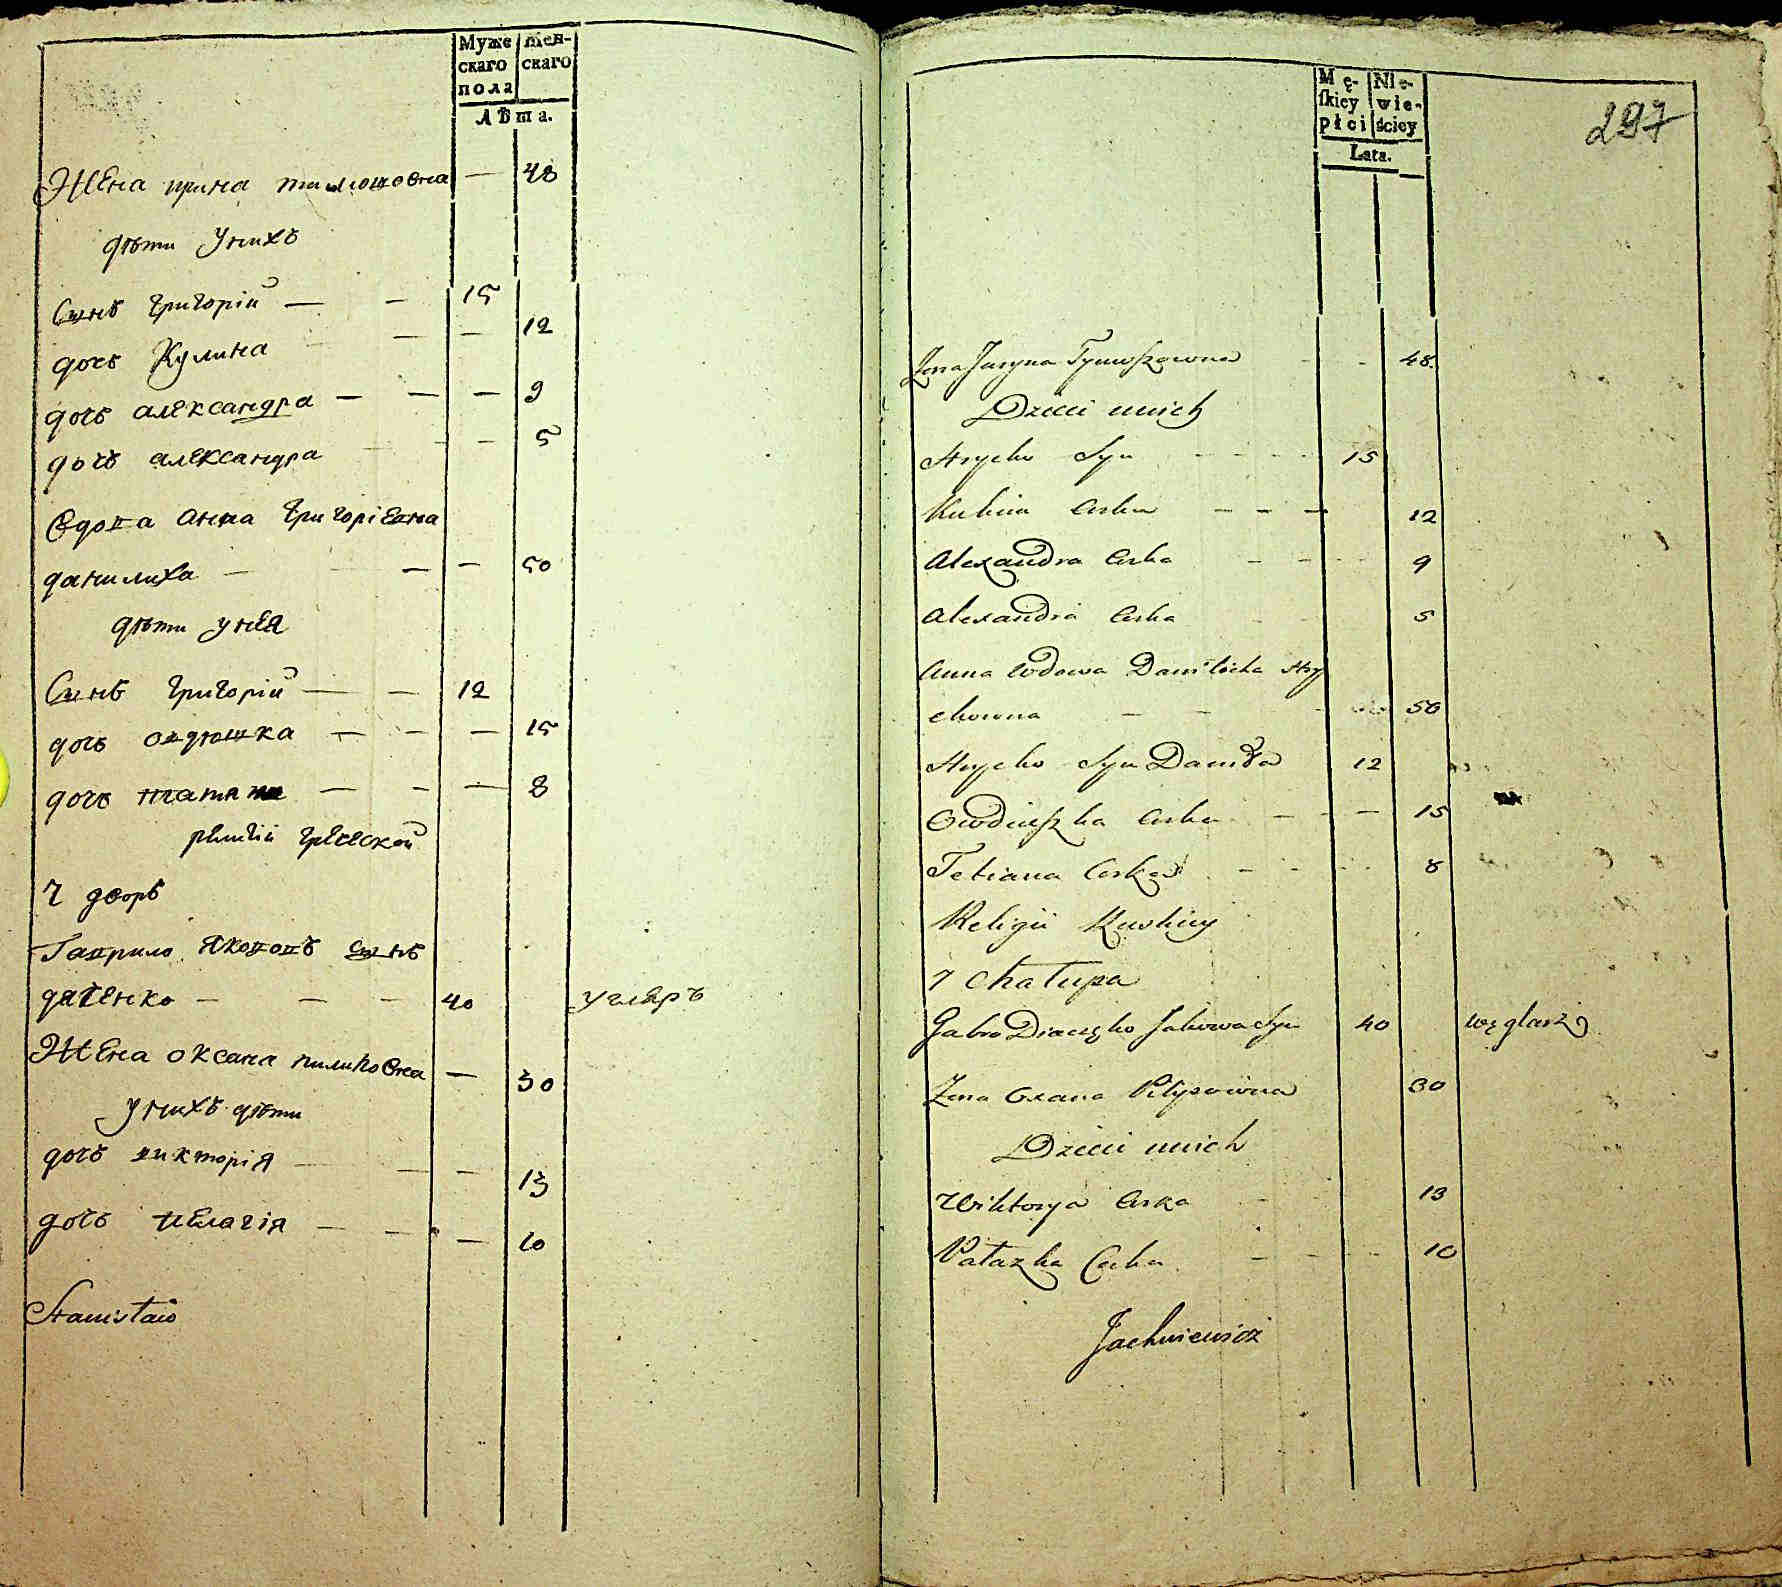 Муже скаго пола
жен- скаго
Лѣта.
Жена ирина тимошовна — 48
дѣти унихъ
Сынъ григорій — — 15
дочь Кулина — — 12
дочь александра — — — 9
дочь александра — — 5
Вдова анна григоріевна
данилиха — — — 50
дѣти унея
Сынъ григорій — — 12
дочь овдюшка — — — 15
дочь татяна — — — 8
религіи греческой
7 дворъ
Гаврило якововъ сынъ
дяченко — — — 40 углеръ
Жена оксана пилиповна — 30
унихъ дѣти
дочь викторія — — — 13
дочь пелагія — — — 10
Stanisław
Mę- skiey płci
Nie- wie- ściey
Lata.
297
Żona Jaryna Tymoszowna - - 48.
Dzieci unich
Hrycko Syn - - - - 15
Kulina Corka - - - 12
Alexandra Corka - - - - 9
Alexandra Corka - - 5
Anna Wdowa Daniłicha Hry
chowna - - - 50
Hrycko Syn Daniła 12
Owdiuszka Corka - - - 15
Tetiana Corka - - - - 8
Religii Ruskiey
7 Chałupa
Gabro Diaczko Jakowa Syn 40 węglarz
Żona Oxana Pilipowna 30
Dzieci unich
Wiktorya Corka - 13
Pałazka Corka - - - - 10
Jachniewicz